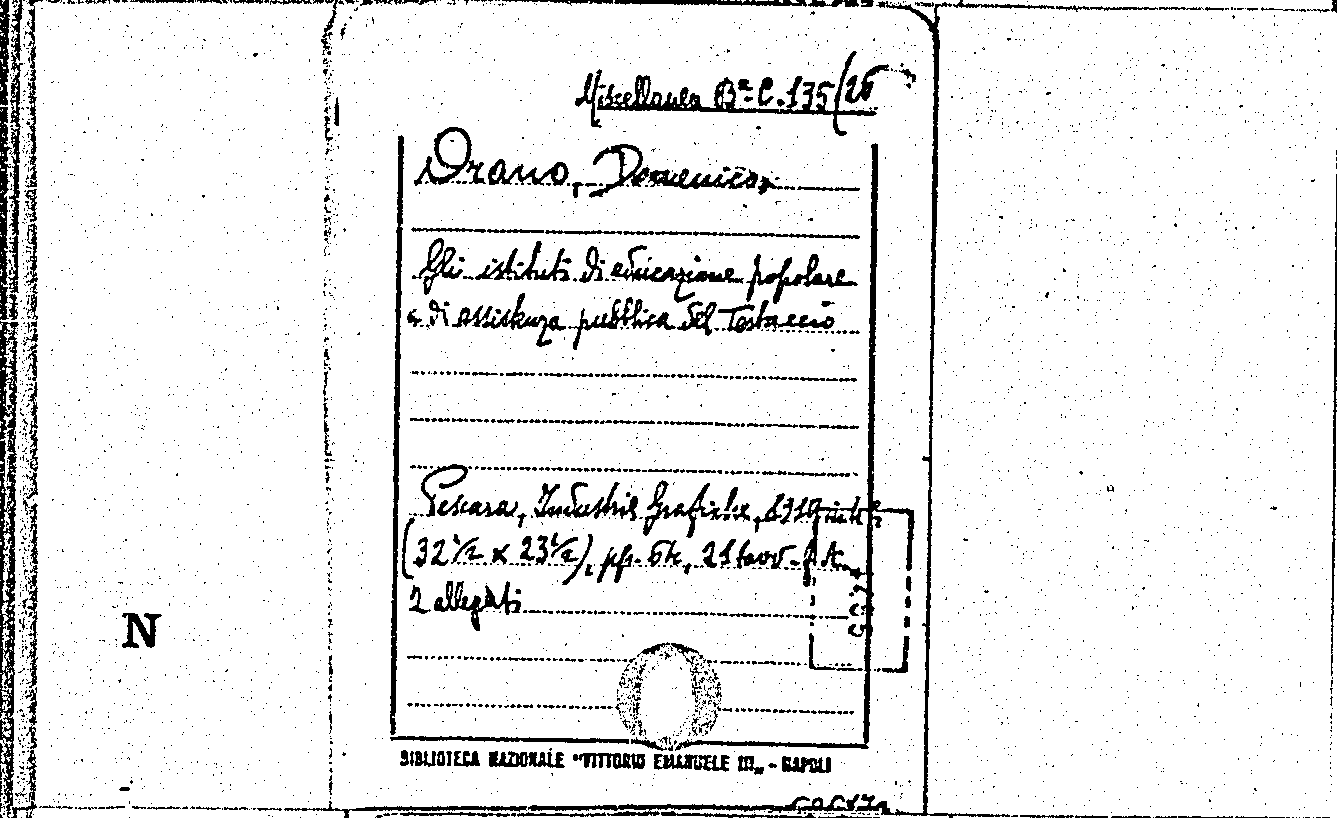 Miscellanea Bª C. 135/26
Orano, Domenico
Gli istituti di educazione popolare
e di assistenza pubblica del Testaccio
Pescara, Industrie Grafiche, 1910
(32½ × 23½), pp. 64, 21 tavv.
2 allegati
N
BIBLIOTECA NAZIONALE "VITTORIO EMANUELE III„ - NAPOLI